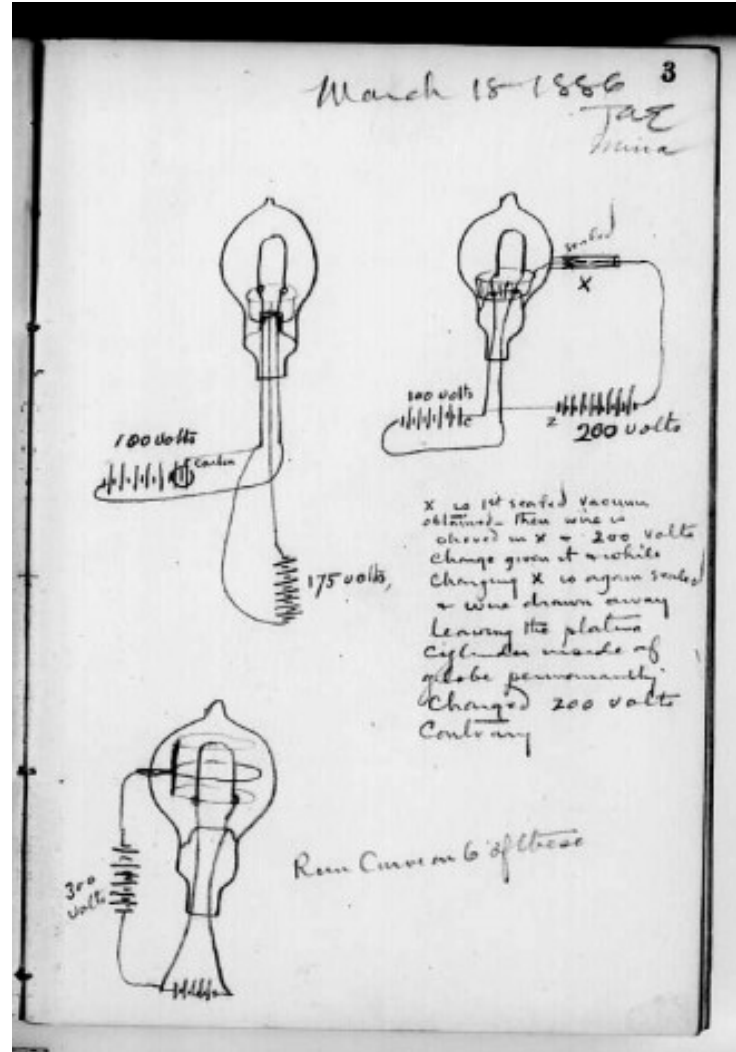 3
March 18-1886
TAE
Mina
sealed
X
100 volts
c
z
200 volts
100 volts
Carbon
175 volts,
X is 1st sealed vacuum
obtained - then wire is
shoved in X & 200 volts
charge given it & while
charging X is again sealed
& wire drawn away
leaving the platina
cylinder inside of
globe permanently
charged 200 volts
Contrary
300
volts
Run Curve on 6 of these